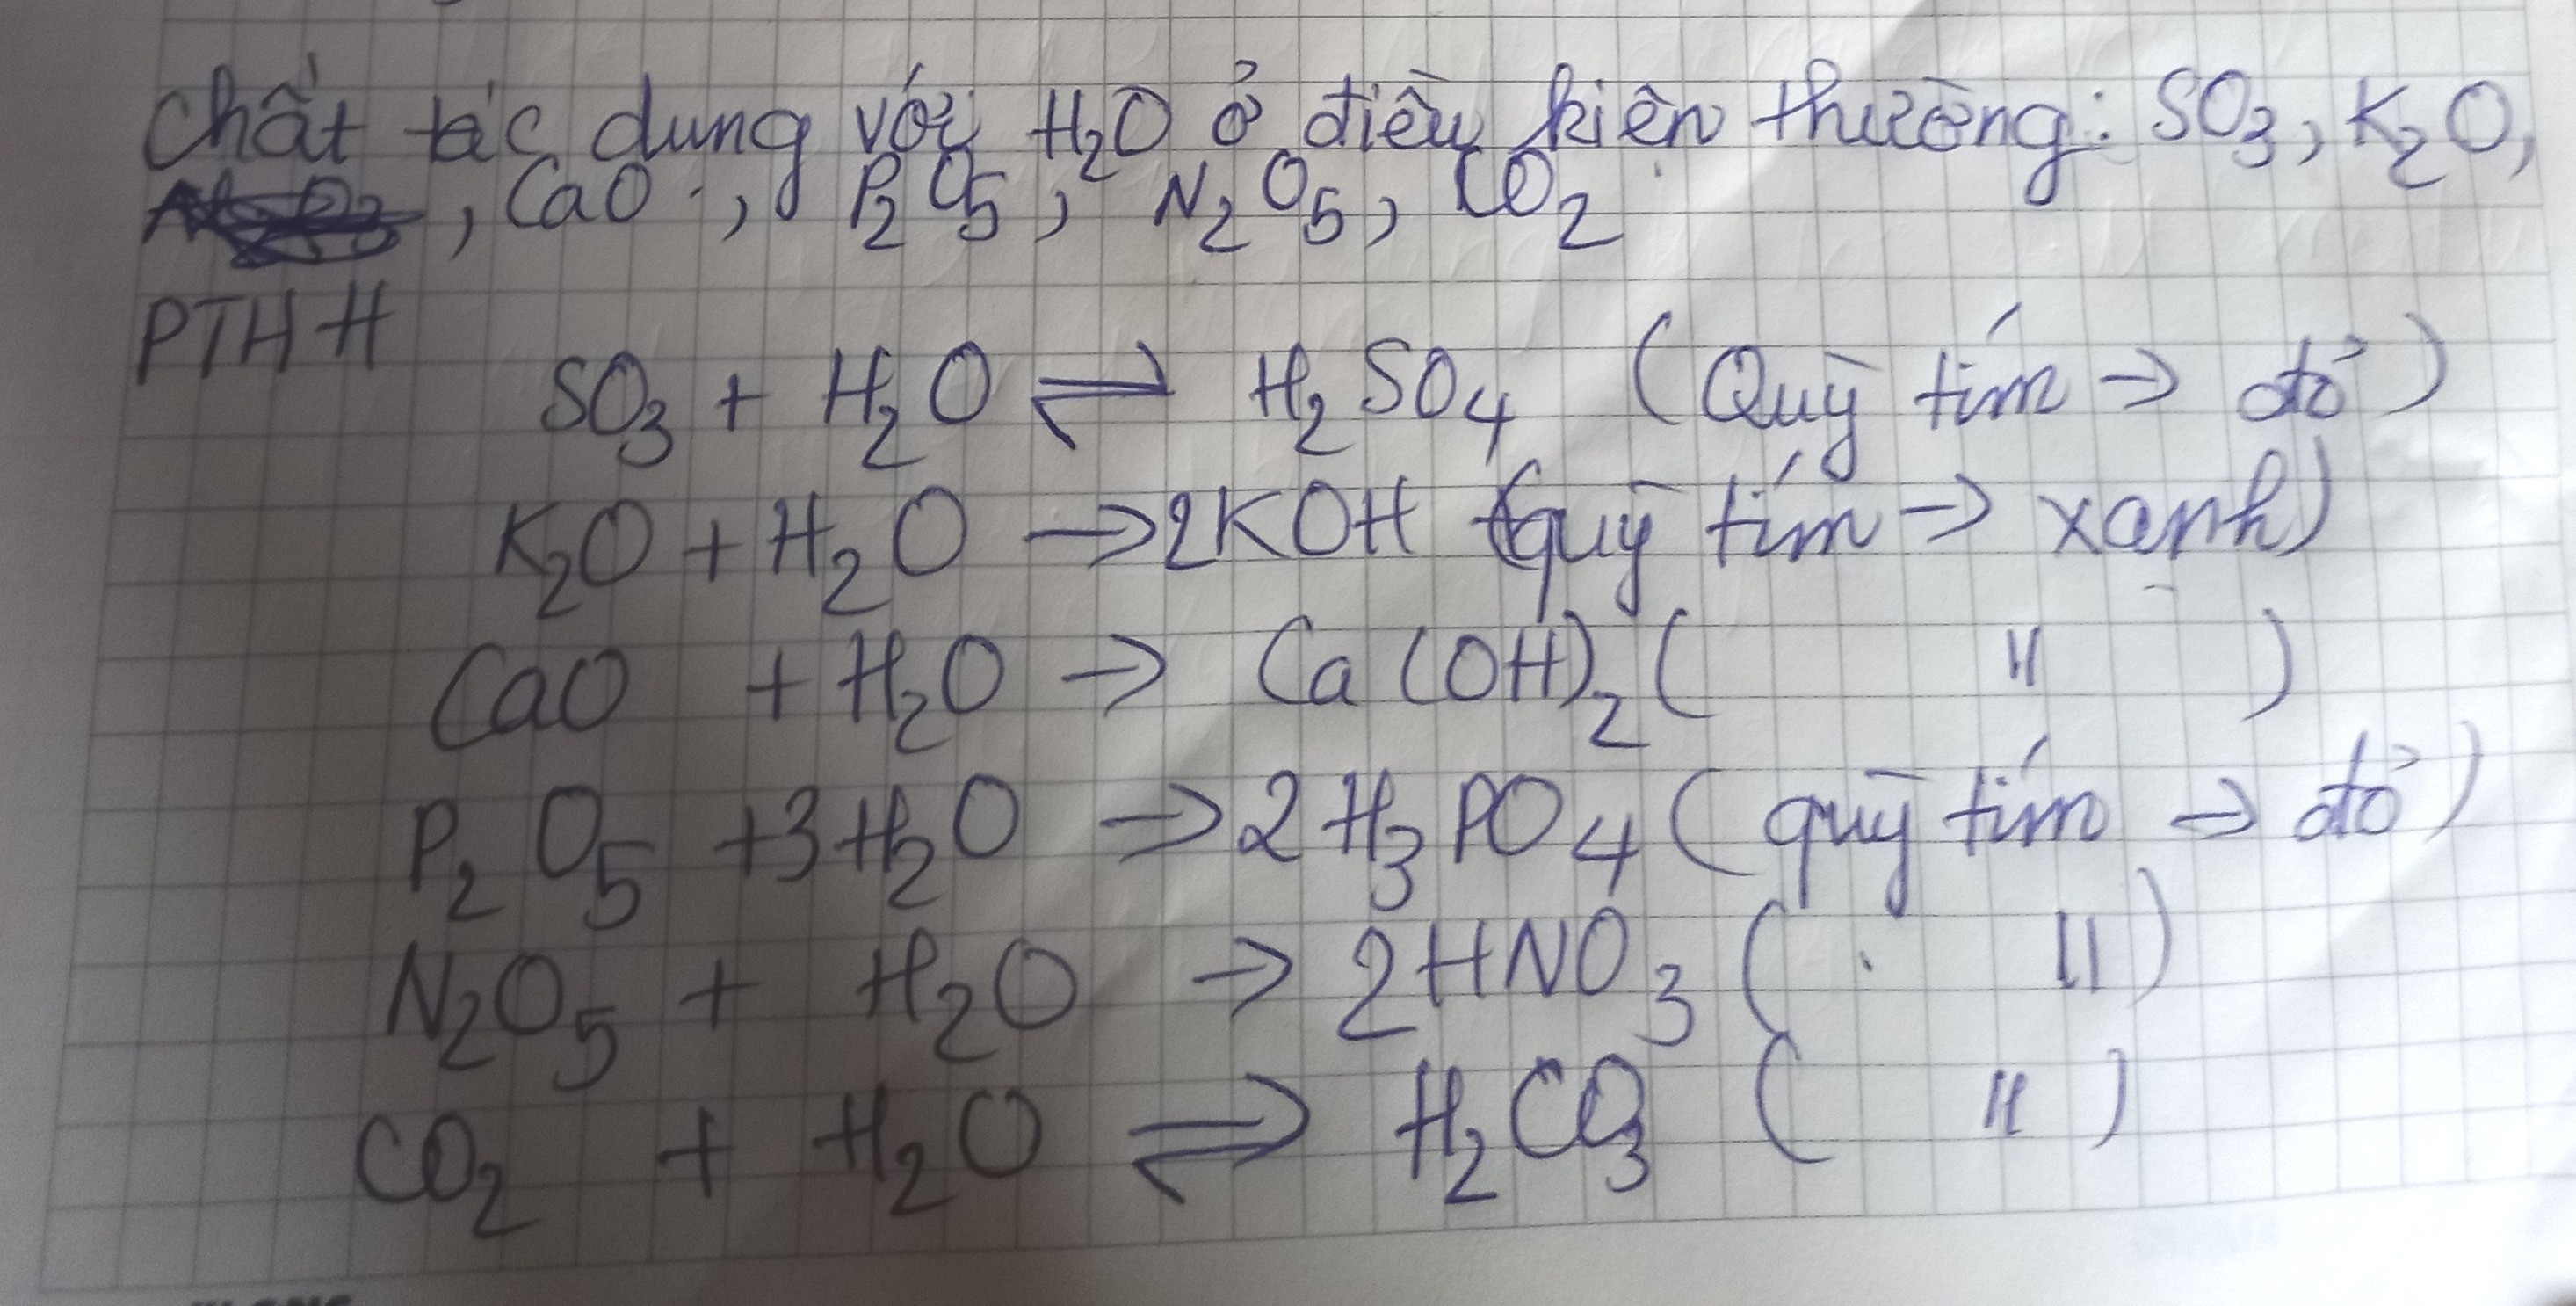 Chất tác dụng với H₂O ở điều kiện thường: SO₃, K₂O,
, CaO, P₂O₅, N₂O₅, CO₂
PTHH
SO₃ + H₂O ⇌ H₂SO₄ (Quỳ tím → đỏ)
K₂O + H₂O → 2KOH (quỳ tím → xanh)
CaO + H₂O → Ca(OH)₂ ( " )
P₂O₅ + 3H₂O → 2H₃PO₄ (quỳ tím → đỏ)
N₂O₅ + H₂O → 2HNO₃ ( " )
CO₂ + H₂O ⇌ H₂CO₃ ( " )